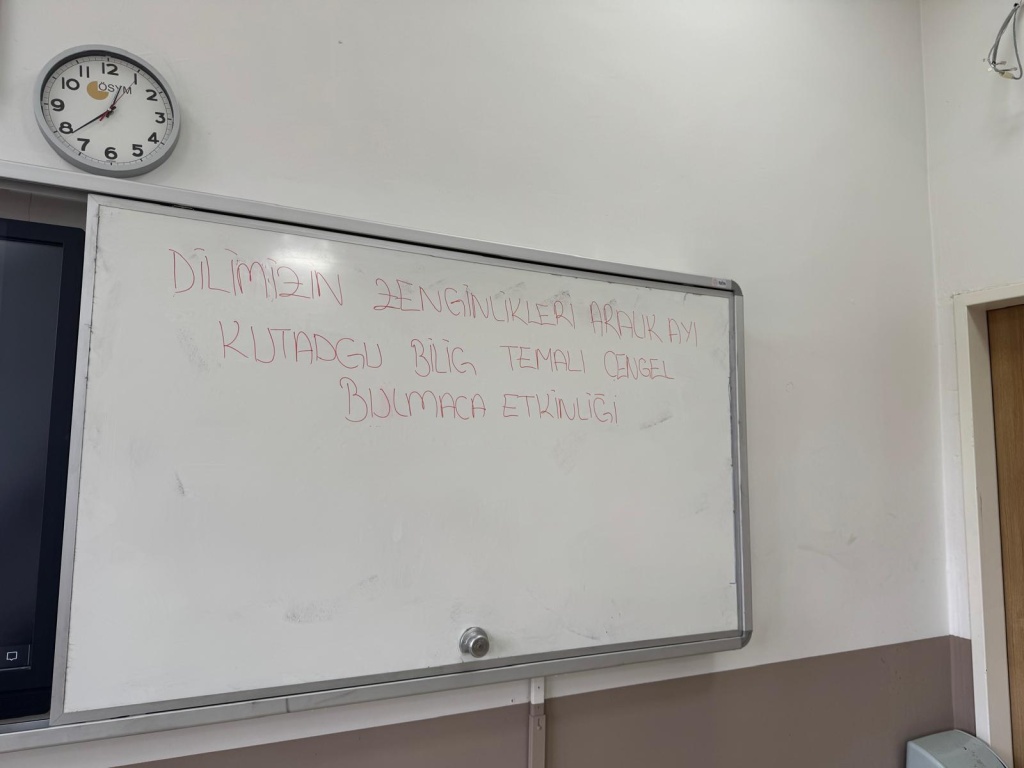 12
1
2
3
4
5
6
7
8
9
10
11
ÖSYM
DİLİMİZİN ZENGİNLİKLERİ ARALIK AYI
KUTADGU BİLİG TEMALI ÇENGEL
BULMACA ETKİNLİĞİ